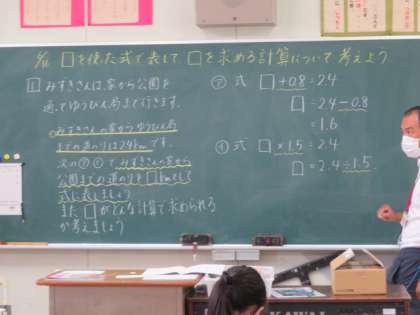 □を使った式で表して □を求める計算について考えよう
1 みずきさんは、家から公園を
通ってゆうびん局まで行きます。
みずきさんの家からゆうびん局
までの道のりは2.4kmです。
次の㋐㋑で みずきさんの家から
公園までの道のりを□kmとして
式に表しましょう
また □がどんな計算で求められる
か考えましょう
㋐ 式 □+0.8=2.4
□=2.4-0.8
=1.6
㋑ 式 □×1.5=2.4
□=2.4÷1.5